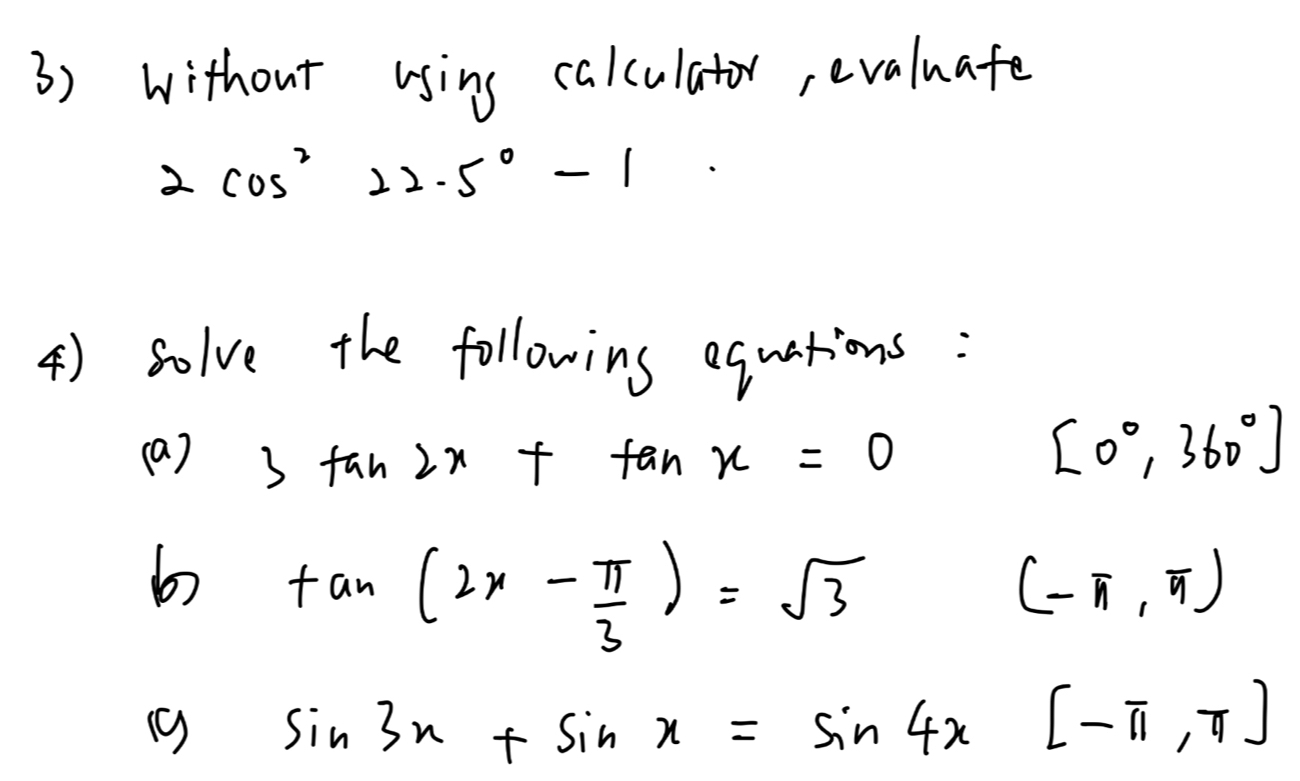 3) Without using calculator, evaluate
2 cos² 22.5° - 1 .
4) Solve the following equations :
(a) 3 tan 2x + tan x = 0 [0°, 360°]
b) tan (2x - π/3) = √3 (-π, π)
(c) sin 3x + sin x = sin 4x [-π, π]